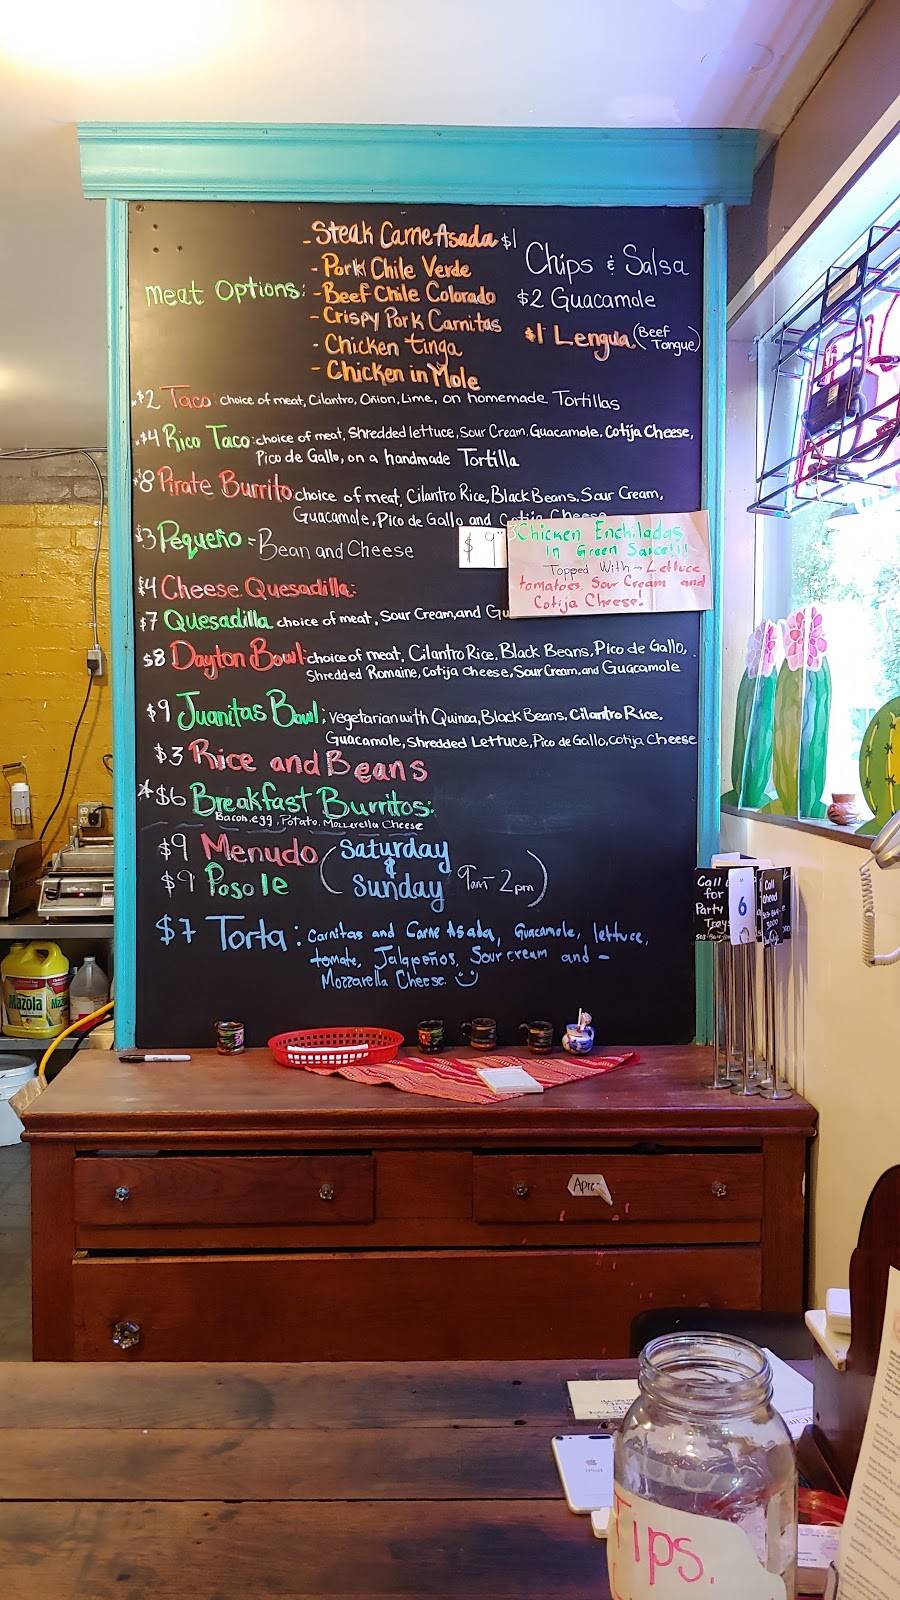 Meat Options:
- Steak Carne Asada
- Pork Chile Verde
- Beef Chile Colorado
- Crispy Pork Carnitas
- Chicken tinga
- Chicken in Mole
$1 Chips & Salsa
$2 Guacamole
$1 Lengua (Beef Tongue)
$2 Taco: choice of meat, Cilantro, Onion, Lime, on homemade Tortillas
$4 Rico Taco: choice of meat, Shredded lettuce, Sour Cream, Guacamole, Cotija Cheese,
Pico de Gallo, on a handmade Tortilla
$8 Pirate Burrito choice of meat, Cilantro Rice, Black Beans, Sour Cream,
Guacamole, Pico de Gallo and Cotija Cheese
$3 Pequeño = Bean and Cheese
$9
Chicken Enchiladas
in Green Sauce!!!
Topped With - Lettuce
tomatoes, Sour Cream and
Cotija Cheese!
$4 Cheese Quesadilla:
$7 Quesadilla choice of meat, Sour Cream, and Gu
$8 Dayton Bowl: choice of meat, Cilantro Rice, Black Beans, Pico de Gallo,
Shredded Romaine, Cotija cheese, Sour Cream, and Guacamole
$9 Juanitas Bowl; vegetarian with Quinoa, Black Beans, Cilantro Rice,
Guacamole, Shredded Lettuce, Pico de Gallo, Cotija Cheese
$3 Rice and Beans
*$6 Breakfast Burritos:
Bacon, egg, Potato, Mozzerella Cheese
$9 Menudo
$9 Posole
(Saturday
&
Sunday 9am-2pm)
$7 Torta: Carnitas and Carne Asada, Guacamole, lettuce,
tomate, Jalapeños, Sour cream and -
Mozzarella Cheese.
Call
for
Party
Trays
6
Call
Ahead
Mazola
Tips.